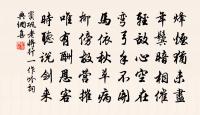 烽煙猶未盡
年鬢暗相催
輕敵心空在
彎弓手不開
馬依秋草病
柳傍故營摧
唯有酬恩客
時聽說劍來
竇鞏老將行一作吟詞
典網